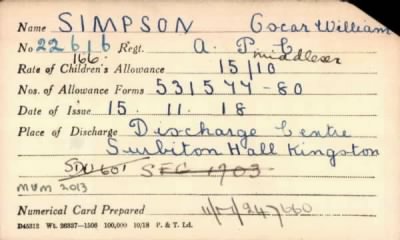 Name SIMPSON Oscar William
No 22616 Regt. A. P. C
166. middlesex
Rate of Children's Allowance 15/10
Nos. of Allowance Forms 531577-80
Date of Issue 15. 11. 18
Place of Discharge Discharge Centre
Surbiton Hall Kingston
SDU 601 SEC 1703
MUM 2013
Numerical Card Prepared
D45312 Wt. 26337—1506 100,000 10/18 P. & T. Ld.